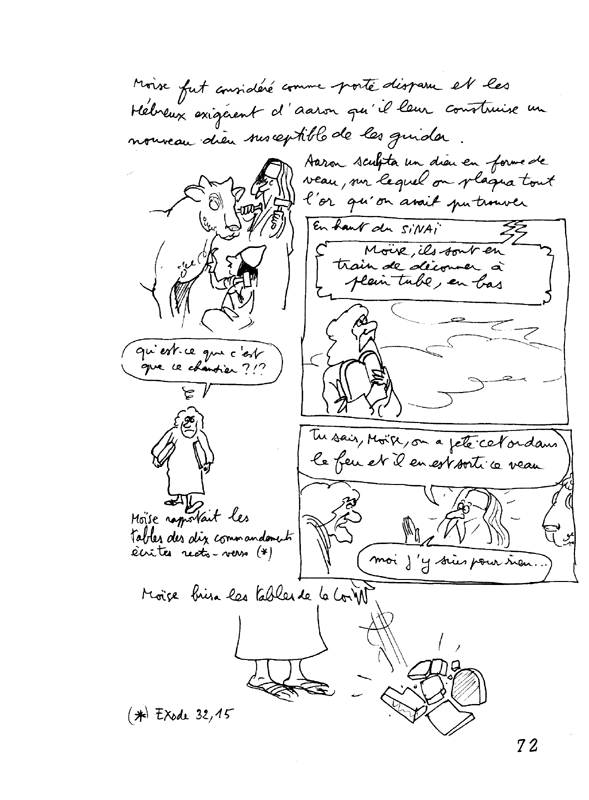 Moïse fut considéré comme porté disparu et les
Hébreux exigèrent d'aaron qu'il leur construise un
nouveau dieu susceptible de les guider.
Aaron sculpta un dieu en forme de
veau, sur lequel on plaqua tout
l'or qu'on avait pu trouver
En haut du SiNAi
Moïse, ils sont en
train de déconner à
plein tube, en bas
qu'est-ce que c'est
que ce chantier ?!?
Moïse rapportait les
tables des dix commandements
écrites recto-verso (*)
Tu sais, Moïse, on a jeté cet or dans
le feu et il en est sorti ce veau
moi j'y suis pour rien...
Moïse brisa les tables de la Loi
(*) EXode 32,15
72